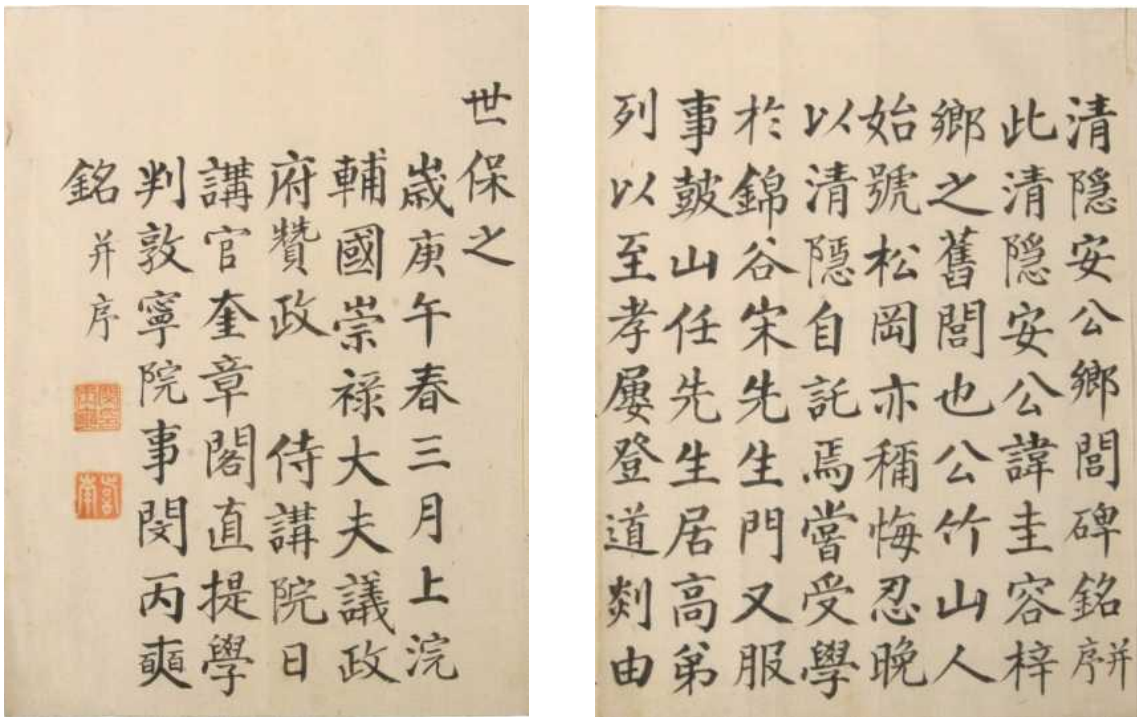 清隐安公鄉閭碑銘并序
此清隐安公諱圭容梓
鄉之舊閭也公竹山人
始號松岡亦稱悔忍晚
以清隱自託焉嘗受學
於錦谷宋先生門又服
事皷山任先生居高弟
列以至孝屢登道剡由
世保之
歲庚午春三月上浣
輔國崇禄大夫議政
府贊政 侍講院日
講官奎章閣直提學
判敦寧院事閔丙奭
銘 并序